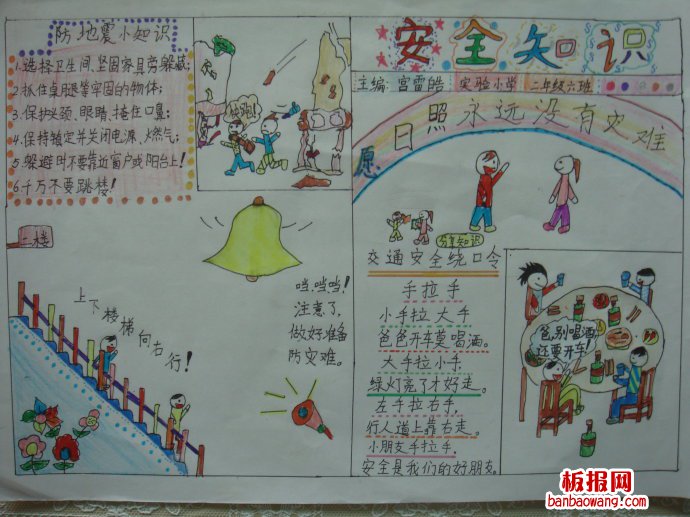 防地震小知识
1.选择卫生间、坚固家具旁躲藏;
2.抓住桌腿等牢固的物体;
3.保护头颈、眼睛、掩住口鼻;
4.保持镇定并关闭电源、燃气;
5.躲避时不要靠近窗户或阳台上!
6.千万不要跳楼!
快跑!
二楼
上下楼梯向右行!
当,当,当!
注意了,
做好准备
防灾难。
安全知识
主编:宫雷皓 实验小学 二年级六班
愿日照永远没有灾难
分享知识
交通安全绕口令
手拉手
小手拉大手
爸爸开车莫喝酒。
大手拉小手,
绿灯亮了才好走。
左手拉右手,
行人道上靠右走。
小朋友手拉手,
安全是我们的好朋友。
爸,别喝酒
还要开车!
板报网
banbaowang.com